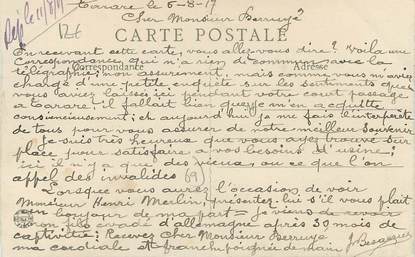 Rep le 11/8/17
Tarare le 5-8-17
Cher Monsieur Serruye
CARTE POSTALE
Correspondance
Adresse
En recevant cette carte, vous allez vous dire? Voilà une
Correspondance qui n'a rien de commun avec la
télégraphie; non assurement, mais comme vous m'aviez
chargé d'un petite enquête sur les sentiments que
vous l'aviez laissés ici pendant votre court passage
à Tarare il fallait bien que je m'en acquitte
consciencieusement; eh aujourd'hui je me fais l'interprète
de tous pour vous assurer de notre meilleur souvenir
Je suis très heureux que vous ayez trouvé sur
place pour satisfaire à vos besoins d'usine;
ici il n'y a que des vieux, ou ce que l'on
appel des invalides
Lorsque vous aurez l'occasion de voir
Monsieur Henri Merlin, presentez-lui s'il vous plait
un bonjour de ma part = Je viens de revoir
mon fils evadé d'allemagne après 30 mois de
captivité; Recevez Cher Monsieur Serruye
ma cordiale et franche poignée de main